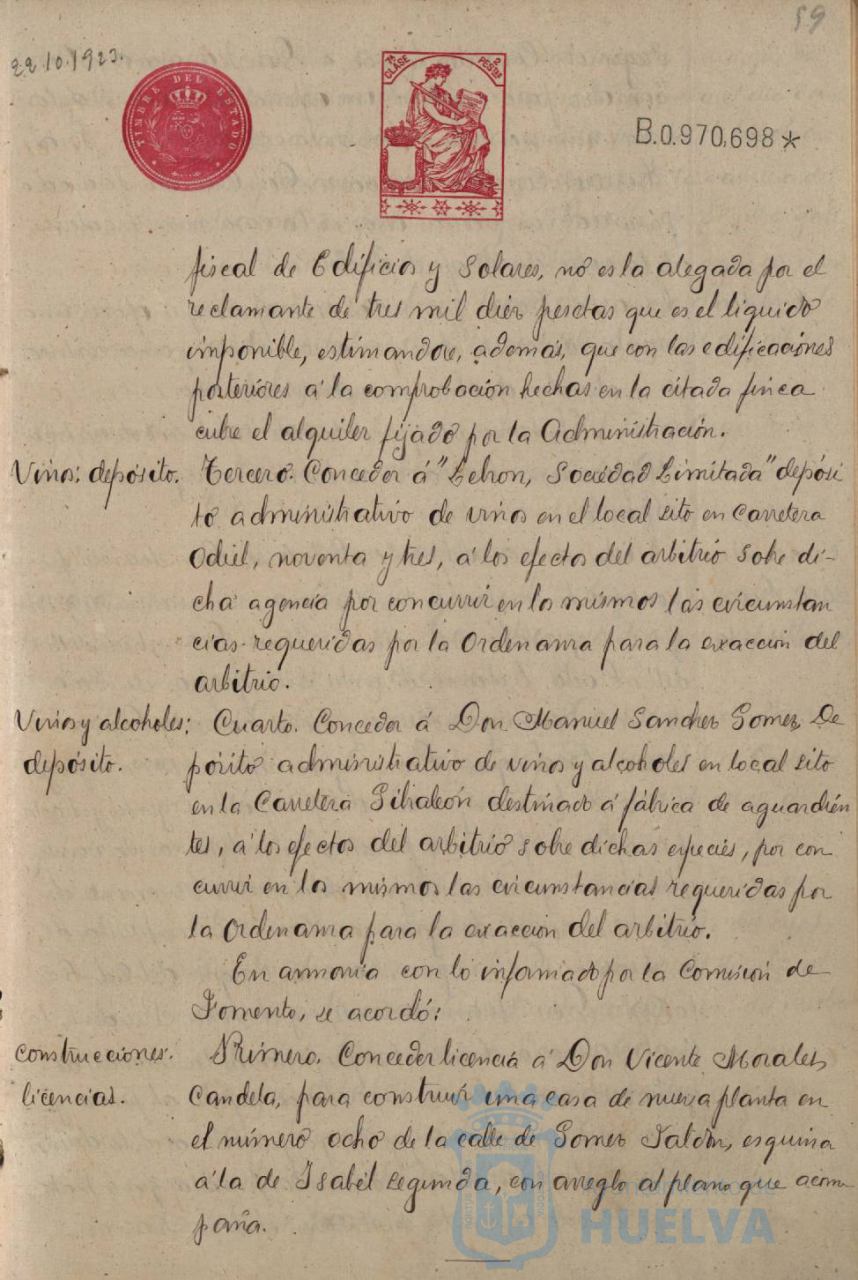 59
22.10.1923.
TIMBRE DEL ESTADO
7ª CLASE 2 PESTAS
B.0.970,698*
fiscal de Edificios y Solares, no es la alegada por el
reclamante de tres mil diez pesetas que es el líquido
imponible, estimandose, además, que con las edificaciones
posteriores á la comprobación hechas en la citada finca
cubre el alquiler fijado por la Administración.
Vinos: depósito.
Tercero. Conceder á "Lebron, Sociedad Limitada" depósi
to administrativo de vinos en el local sito en Carretera
Odiel, noventa y tres, á los efectos del arbitrio sobre di-
cha agencia por concurrir en los mismos las circunstan
cias requeridas por la Ordenanza para la exacción del
arbitrio.
Vinos y alcoholes:
depósito.
Cuarto. Conceder á Don Manuel Sanchez Gomez, De
pósito administrativo de vinos y alcoholes en local sito
en la Carretera Gibraleón destinado á fábrica de aguardien
tes, á los efectos del arbitrio sobre dichas especies, por con
currir en los mismos las circunstancias requeridas por
la Ordenanza para la exacción del arbitrio.
En armonia con lo informado por la Comisión de
Fomento, se acordó:
Construcciones.
licencias.
Primero. Conceder licencia á Don Vicente Morales
Candela, para construir una casa de nueva planta en
el número ocho de la calle de Gomez Jaldon, esquina
á la de Isabel segunda, con arreglo al plano que acom
paña.
HUELVA